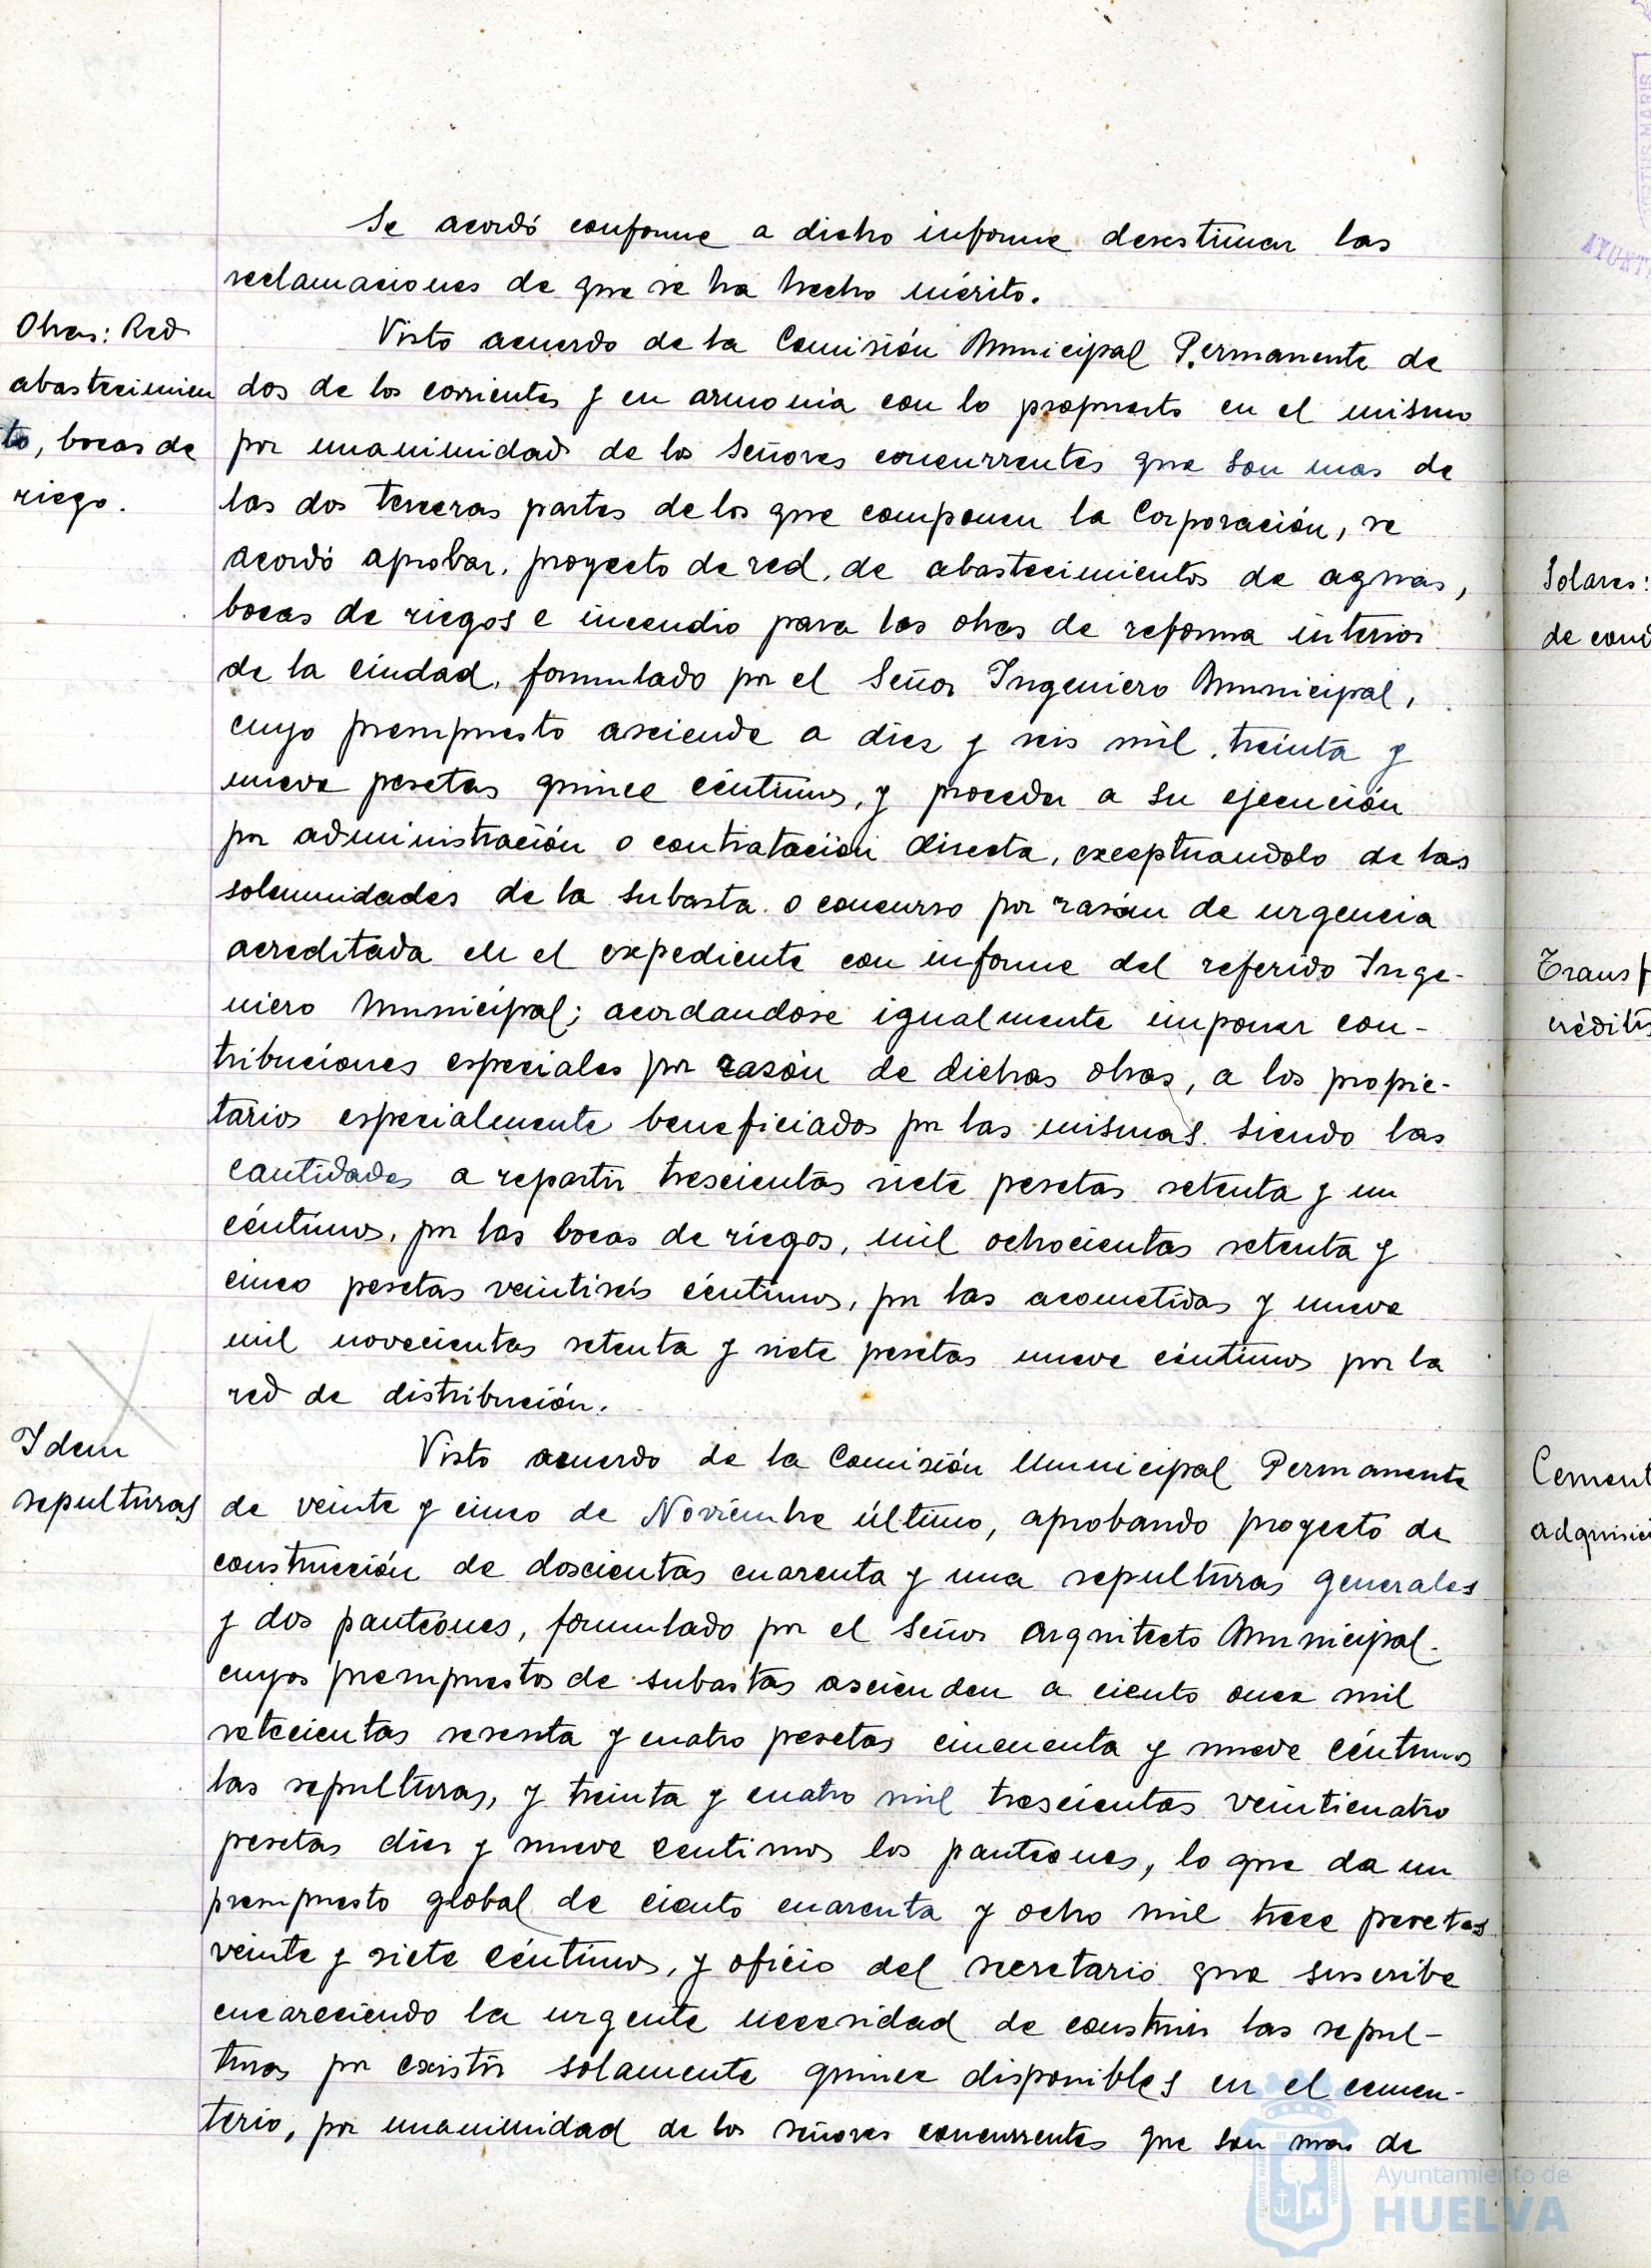 Se acordó conforme a dicho informe desestimar las
reclamaciones de que se ha hecho mérito.
Obras: Red
abastecimien
to, bocas de
riego.
Visto acuerdo de la Comisión Municipal Permanente de
dos de los corrientes y en armonia con lo propuesto en el mismo
por unanimidad de los Señores concurrentes que son mas de
las dos terceras partes de los que componen la Corporación, se
acordó aprobar, proyecto de red, de abastecimientos de aguas,
bocas de riegos e incendio para las obras de reforma interior
de la ciudad, formulado por el Señor Ingeniero Municipal,
cuyo presupuesto asciende a diez y seis mil, treinta y
nueve pesetas quince céntimos, y proceder a su ejecución
por administración o contratación directa, exceptuandolo de las
solemnidades de la subasta o concurso por razón de urgencia
acreditada en el expediente con informe del referido Inge-
niero Municipal; acordandose igualmente imponer con-
tribuciones especiales por razón de dichas obras, a los propie-
tarios especialmente beneficiados por las mismas siendo las
cantidades a repartir trescientas siete pesetas setenta y un
céntimos, por las bocas de riegos, mil ochocientas setenta y
cinco pesetas veintiseis céntimos, por las acometidas y nueve
mil novecientas setenta y siete pesetas nueve céntimos por la
red de distribución.
Idem
sepulturas
Visto acuerdo de la Comisión Municipal Permanente
de veinte y cinco de Noviembre último, aprobando proyecto de
construcción de doscientas cuarenta y una sepulturas generales
y dos panteones, formulado por el Señor Arquitecto Municipal.
cuyos presupuestos de subastas ascienden a ciento once mil
setecientas sesenta y cuatro pesetas cincuenta y nueve céntimos
las sepulturas, y treinta y cuatro mil trescientas veinticuatro
pesetas diez y nueve centimos los panteones, lo que da un
presupuesto global de ciento cuarenta y ocho mil trece pesetas
veinte y siete céntimos, y oficio del secretario que suscribe
encareciendo la urgente necesidad de construir las sepul-
turas por existir solamente quince disponibles en el cemen-
terio, por unanimidad de los señores concurrentes que son mas de
Solares:
de cond
Transf
crédits
Cement
adquisici
AYUNT
Ayuntamiento de
HUELVA